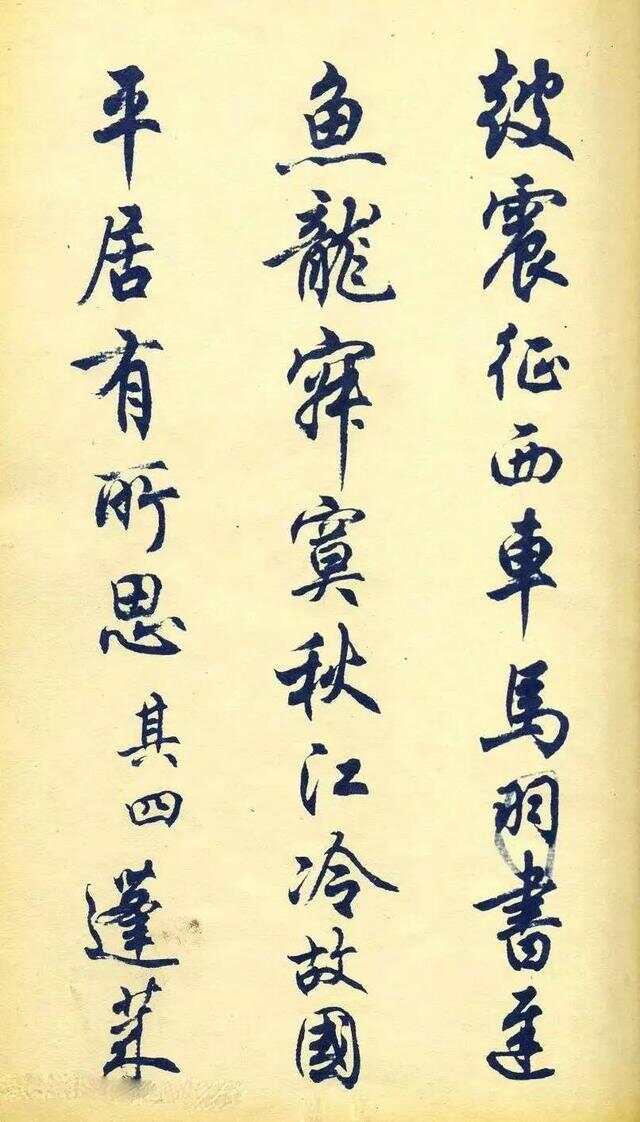 鼓震征西車馬羽書遲
魚龍寂寞秋江冷故國
平居有所思其四蓬萊